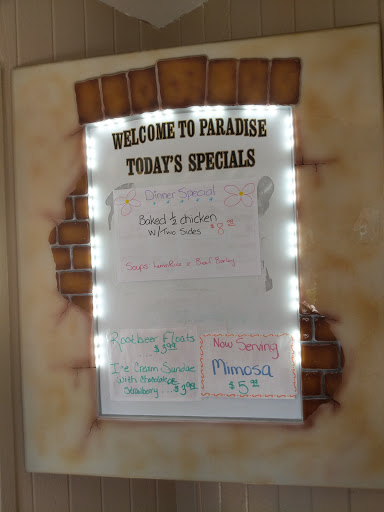 WELCOME TO PARADISE
TODAY'S SPECIALS
Dinner Special
Baked ½ chicken
w/Two Sides $8.00
Soups: LemonRice & Beef Barley
Rootbeer Floats
.... $3.99
Ice Cream Sundae
with Chocolate OR
Strawberry .... $3.99
Now Serving
Mimosa
$5.00